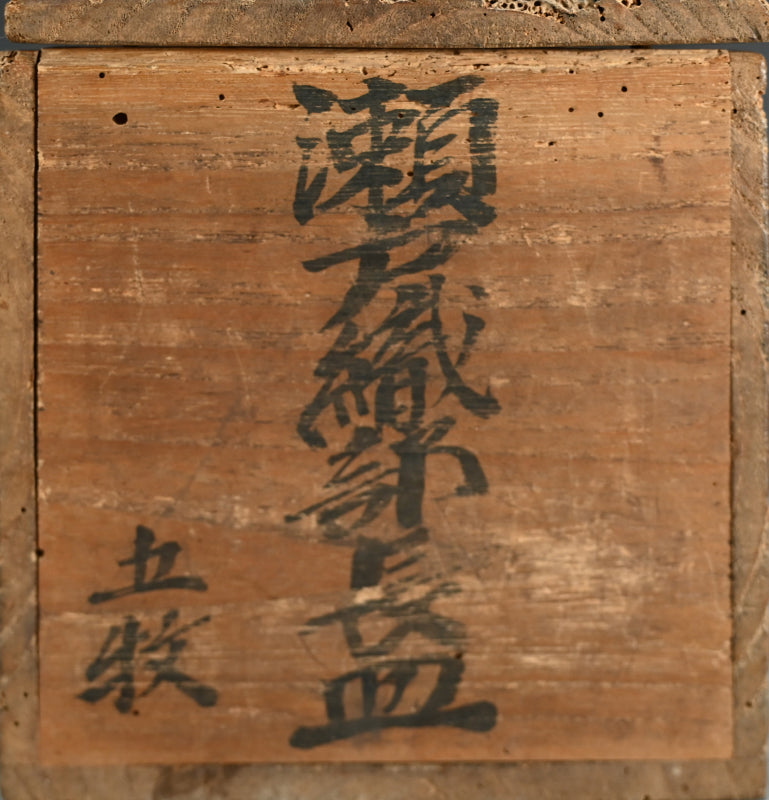 瀬戸織部長皿
五枚